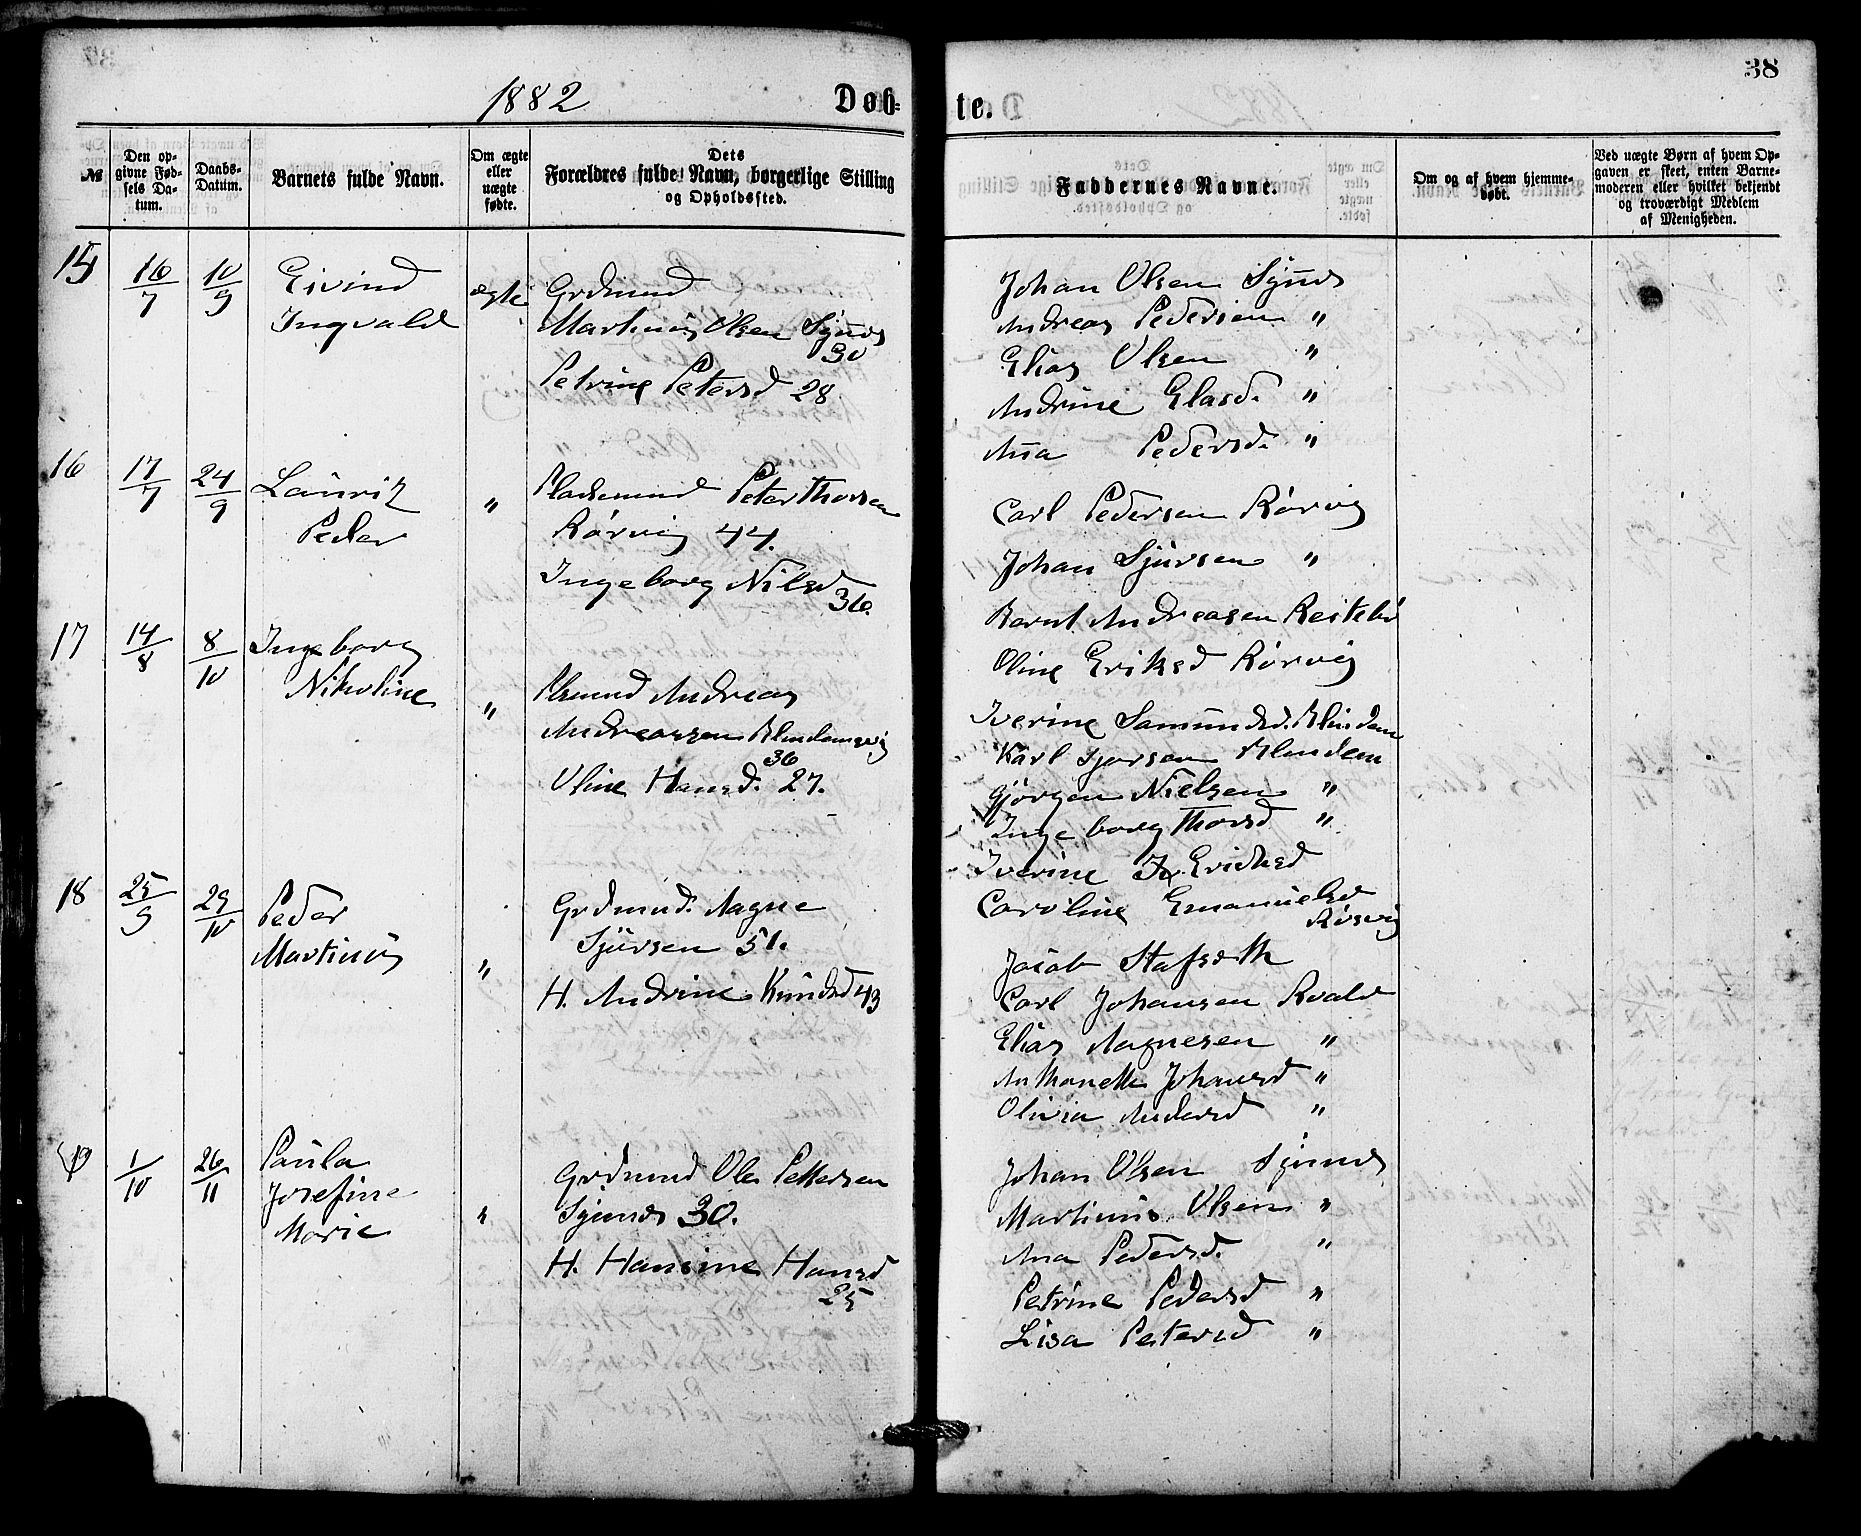 38
1882
Døb-
te.
№
Den op-
givne Fød-
sels Da-
tum.
Daabs-
Datum.
Barnets fulde Navn.
Om ægte
eller
uægte
fødte.
Dets
Forældres fulde Navn, borgerlige Stilling
og Opholdssted.
Faddernes Navne.
Om og af hvem hjemme-
døbt.
Ved uægte Børn af hvem Op-
gaven er skeet, enten Barne-
moderen eller hvilket bekjendt
og troværdigt Medlem
af Menigheden.
15
16/7
10/9
Eivind
Ingvald
ægte
Grdmand
Martinus Olsen Synes
30
Petrine Petersd 28
Johan Olsen Synes
Andreas Pedersen "
Elias Olsen "
Andrine Elasd. "
Ana Pedersd. "
16
17/7
24/9
Lauritz
Peder
"
Pladsmand Peter Thorsen
Rørvig 44.
Ingeborg Nilsd
36.
Carl Pedersen Rørvig
Johan Sjursen "
Bernt Andreasen Reitebø
Oline Eriksd Rørvig
17
14/8
8/10
Ingeborg
Nikoline
"
Andreas
Andreassen Blindemsvig
36
Oline Hansd. 27.
Iverine Samundsd. Blindem
Karl Sjursen Blindem
Gjørgen Nielsen "
Ingeborg Thorsd "
Iverine Eriksd
Caroline Emanuelsd
Rørvig
18
25/9
29/10
Peder
Martinus
"
Grdmand. Magne
Sjursen 51.
H. Andrine Knudsd 43
Jacob Stafseth
Carl Johansen Roald
Elias Magnesen "
Anthonette Johansd "
Olivia Andersd "
19
1/10
26/11
Paula
Josefine
Marie
"
Grdmand Ole Pettersen
Synes 30.
H. Hansine Hansd
25
Johan Olsen Synes
Martinus Olsen "
Ana Pedersd. "
Petrine Pedersd "
Lisa Petersd "